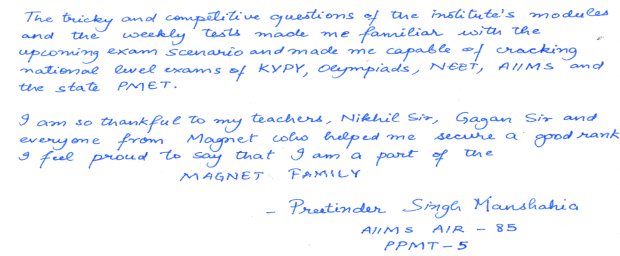 The tricky and competitive questions of the institute's modules
and the weekly tests made me familiar with the
upcoming exam scenario and made me capable of cracking
national level exams of KYPY, Olympiads, NEET, AIIMS and
the state PMET.
I am so thankful to my teachers, Nikhil Sir, Gagan Sir and
everyone from Magnet who helped me secure a good rank
I feel proud to say that I am a part of the
MAGNET FAMILY
- Preetinder Singh Manshahia
AIIMS AIR - 85
PPMT - 5